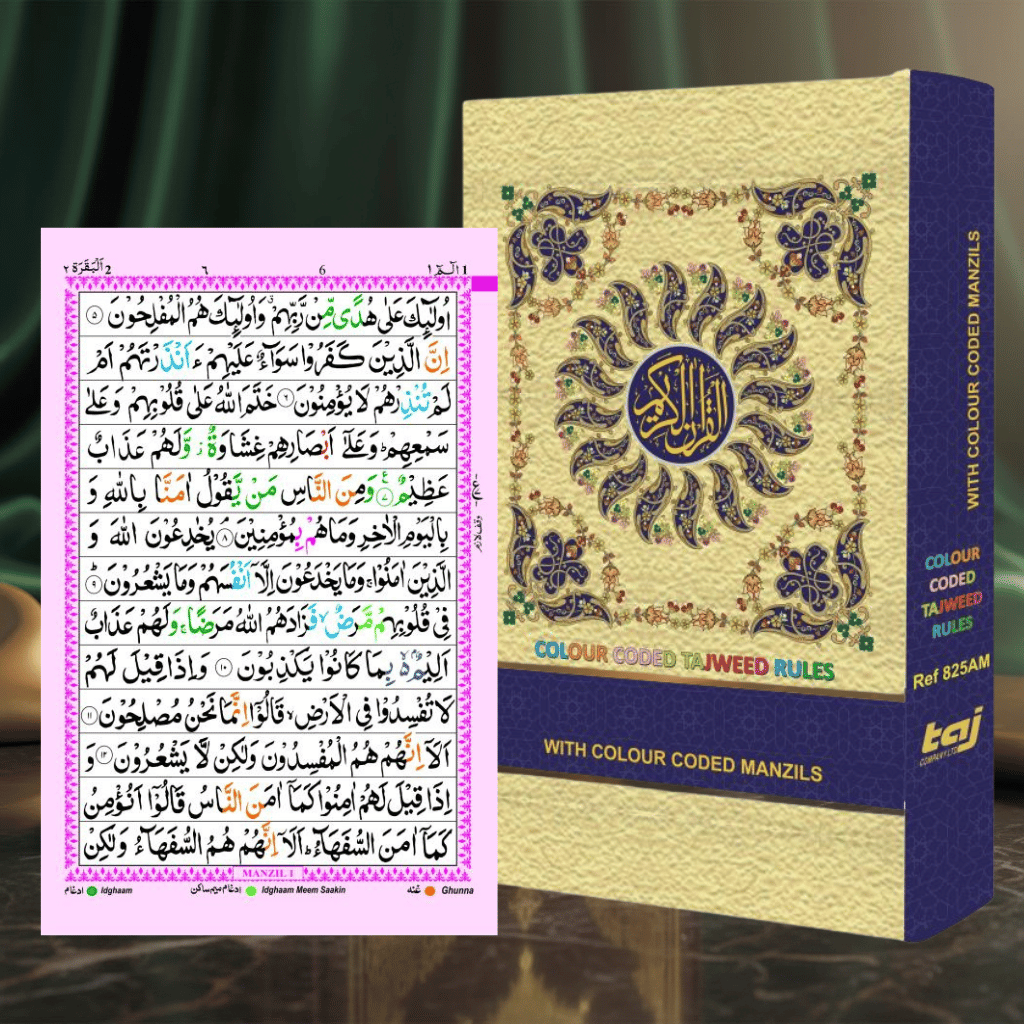 الٓمّٓ ١ 1 6 ٦ اَلْبَقَرَة ٢ 2
اُولٰٓئِكَ عَلٰى هُدًى مِّنْ رَّبِّهِمْ ۙ وَاُولٰٓئِكَ هُمُ الْمُفْلِحُوْنَ ۝٥
اِنَّ الَّذِيْنَ كَفَرُوْا سَوَآءٌ عَلَيْهِمْ ءَاَنْذَرْتَهُمْ اَمْ
لَمْ تُنْذِرْهُمْ لَا يُؤْمِنُوْنَ ۝٦ خَتَمَ اللّٰهُ عَلٰى قُلُوْبِهِمْ وَعَلٰى
سَمْعِهِمْ ؕ وَعَلٰٓى اَبْصَارِهِمْ غِشَاوَةٌ ؗ وَّلَهُمْ عَذَابٌ
عَظِيْمٌ ۝٧ وَمِنَ النَّاسِ مَنْ يَّقُوْلُ اٰمَنَّا بِاللّٰهِ وَ
بِالْيَوْمِ الْاٰخِرِ وَمَا هُمْ بِمُؤْمِنِيْنَ ۝٨ يُخٰدِعُوْنَ اللّٰهَ وَ
الَّذِيْنَ اٰمَنُوْا ۚ وَمَا يَخْدَعُوْنَ اِلَّآ اَنْفُسَهُمْ وَمَا يَشْعُرُوْنَ ۝٩
فِيْ قُلُوْبِهِمْ مَّرَضٌ ۙ فَزَادَهُمُ اللّٰهُ مَرَضًا ۚ وَلَهُمْ عَذَابٌ
اَلِيْمٌ ۙ۬ بِمَا كَانُوْا يَكْذِبُوْنَ ۝١٠ وَاِذَا قِيْلَ لَهُمْ
لَا تُفْسِدُوْا فِي الْاَرْضِ ۙ قَالُوْٓا اِنَّمَا نَحْنُ مُصْلِحُوْنَ ۝١١
اَلَآ اِنَّهُمْ هُمُ الْمُفْسِدُوْنَ وَلٰكِنْ لَّا يَشْعُرُوْنَ ۝١٢ وَ
اِذَا قِيْلَ لَهُمْ اٰمِنُوْا كَمَآ اٰمَنَ النَّاسُ قَالُوْٓا اَنُؤْمِنُ
كَمَآ اٰمَنَ السُّفَهَآءُ ؕ اَلَآ اِنَّهُمْ هُمُ السُّفَهَآءُ وَلٰكِنْ
وقف لازم
MANZIL 1
ادغام Idghaam ادغام میم ساکن Idghaam Meem Saakin غنه Ghunna
القرآن الكريم
COLOUR CODED TAJWEED RULES
WITH COLOUR CODED MANZILS
WITH COLOUR CODED MANZILS
COLOUR
CODED
TAJWEED
RULES
Ref 825AM
taj
COMPANY LTD